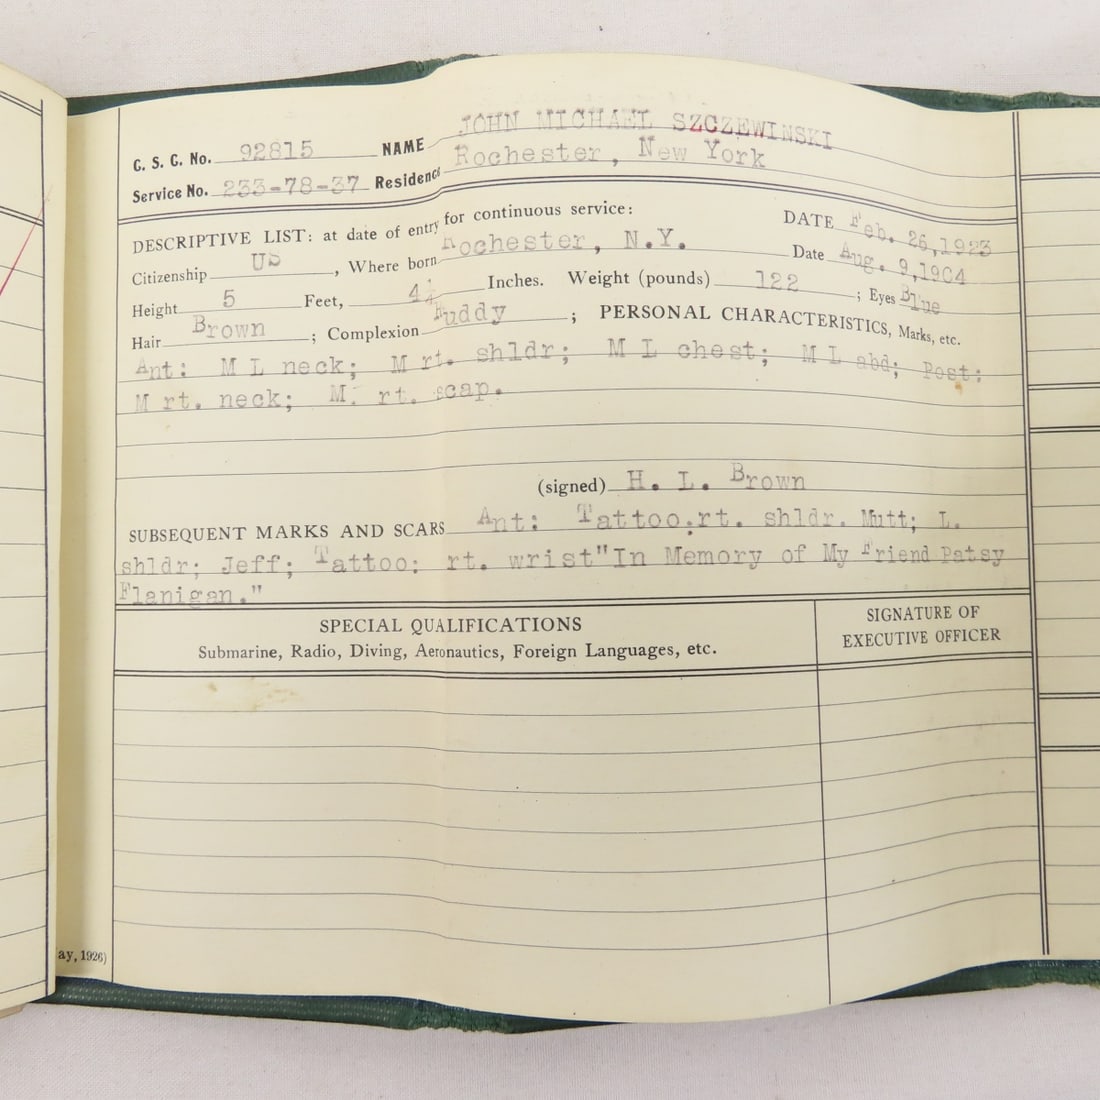 C. S. C. No. 92815 NAME JOHN MICHAEL SZCZEWINSKI
Service No. 233-78-37 Residence Rochester, New York
DESCRIPTIVE LIST: at date of entry for continuous service: DATE Feb. 26,1923
Citizenship US , Where born Rochester, N.Y. Date Aug. 9,1904
Height 5 Feet, 4¼ Inches. Weight (pounds) 122 ; Eyes Blue
Hair Brown ; Complexion Ruddy ; PERSONAL CHARACTERISTICS, Marks, etc.
Ant: M L neck; M rt. shldr; M L chest; M L abd; Post:
M rt. neck; M. rt. scap.
(signed) H. L. Brown
SUBSEQUENT MARKS AND SCARS Ant: Tattoo.rt. shldr. Mutt; L.
shldr; Jeff; Tattoo: rt. wrist"In Memory of My Friend Patsy
Flanigan."
SPECIAL QUALIFICATIONS
Submarine, Radio, Diving, Aeronautics, Foreign Languages, etc.
SIGNATURE OF
EXECUTIVE OFFICER
ay, 1926)